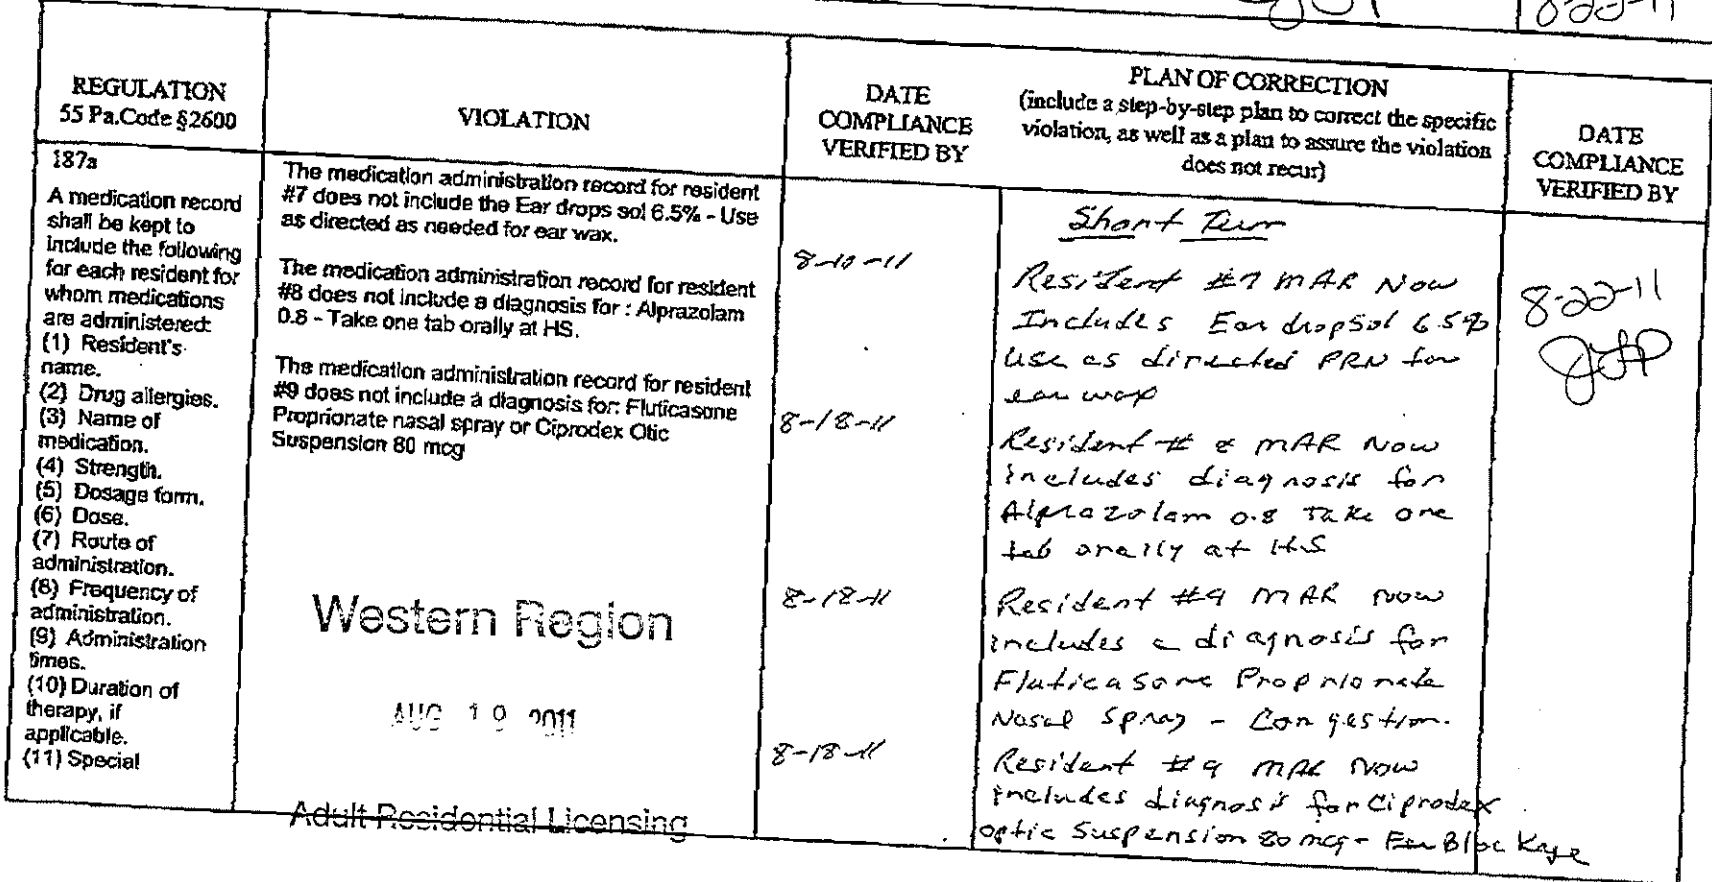 8-22-11
REGULATION
55 Pa.Code §2600
VIOLATION
DATE
COMPLIANCE
VERIFIED BY
PLAN OF CORRECTION
(include a step-by-step plan to correct the specific
violation, as well as a plan to assure the violation
does not recur)
DATE
COMPLIANCE
VERIFIED BY
187a
A medication record
shall be kept to
include the following
for each resident for
whom medications
are administered:
(1) Resident's
name.
(2) Drug allergies.
(3) Name of
medication.
(4) Strength.
(5) Dosage form.
(6) Dose.
(7) Route of
administration.
(8) Frequency of
administration.
(9) Administration
times.
(10) Duration of
therapy, if
applicable.
(11) Special
The medication administration record for resident
#7 does not include the Ear drops sol 6.5% - Use
as directed as needed for ear wax.
The medication administration record for resident
#8 does not include a diagnosis for : Alprazolam
0.8 - Take one tab orally at HS.
The medication administration record for resident
#9 does not include a diagnosis for: Fluticasone
Proprionate nasal spray or Ciprodex Otic
Suspension 80 mcg
Western Region
AUG 19 2011
Adult Residential Licensing
8-10-11
8-18-11
8-18-11
8-18-11
Short Term
Resident #7 MAR Now
Includes Ear dropSol 6.5%
use as directed PRN for
ear wax
Resident # 8 MAR Now
includes diagnosis for
Alprazolam 0.8 Take one
tab orally at H.S
Resident #9 MAR Now
includes a diagnosis for
Fluticasone Proprionate
Nasal Spray - Congestion.
Resident #9 MAR Now
includes diagnosis for Ciprodex
optic Suspension 80 mcg - Ear Blockage
8-22-11